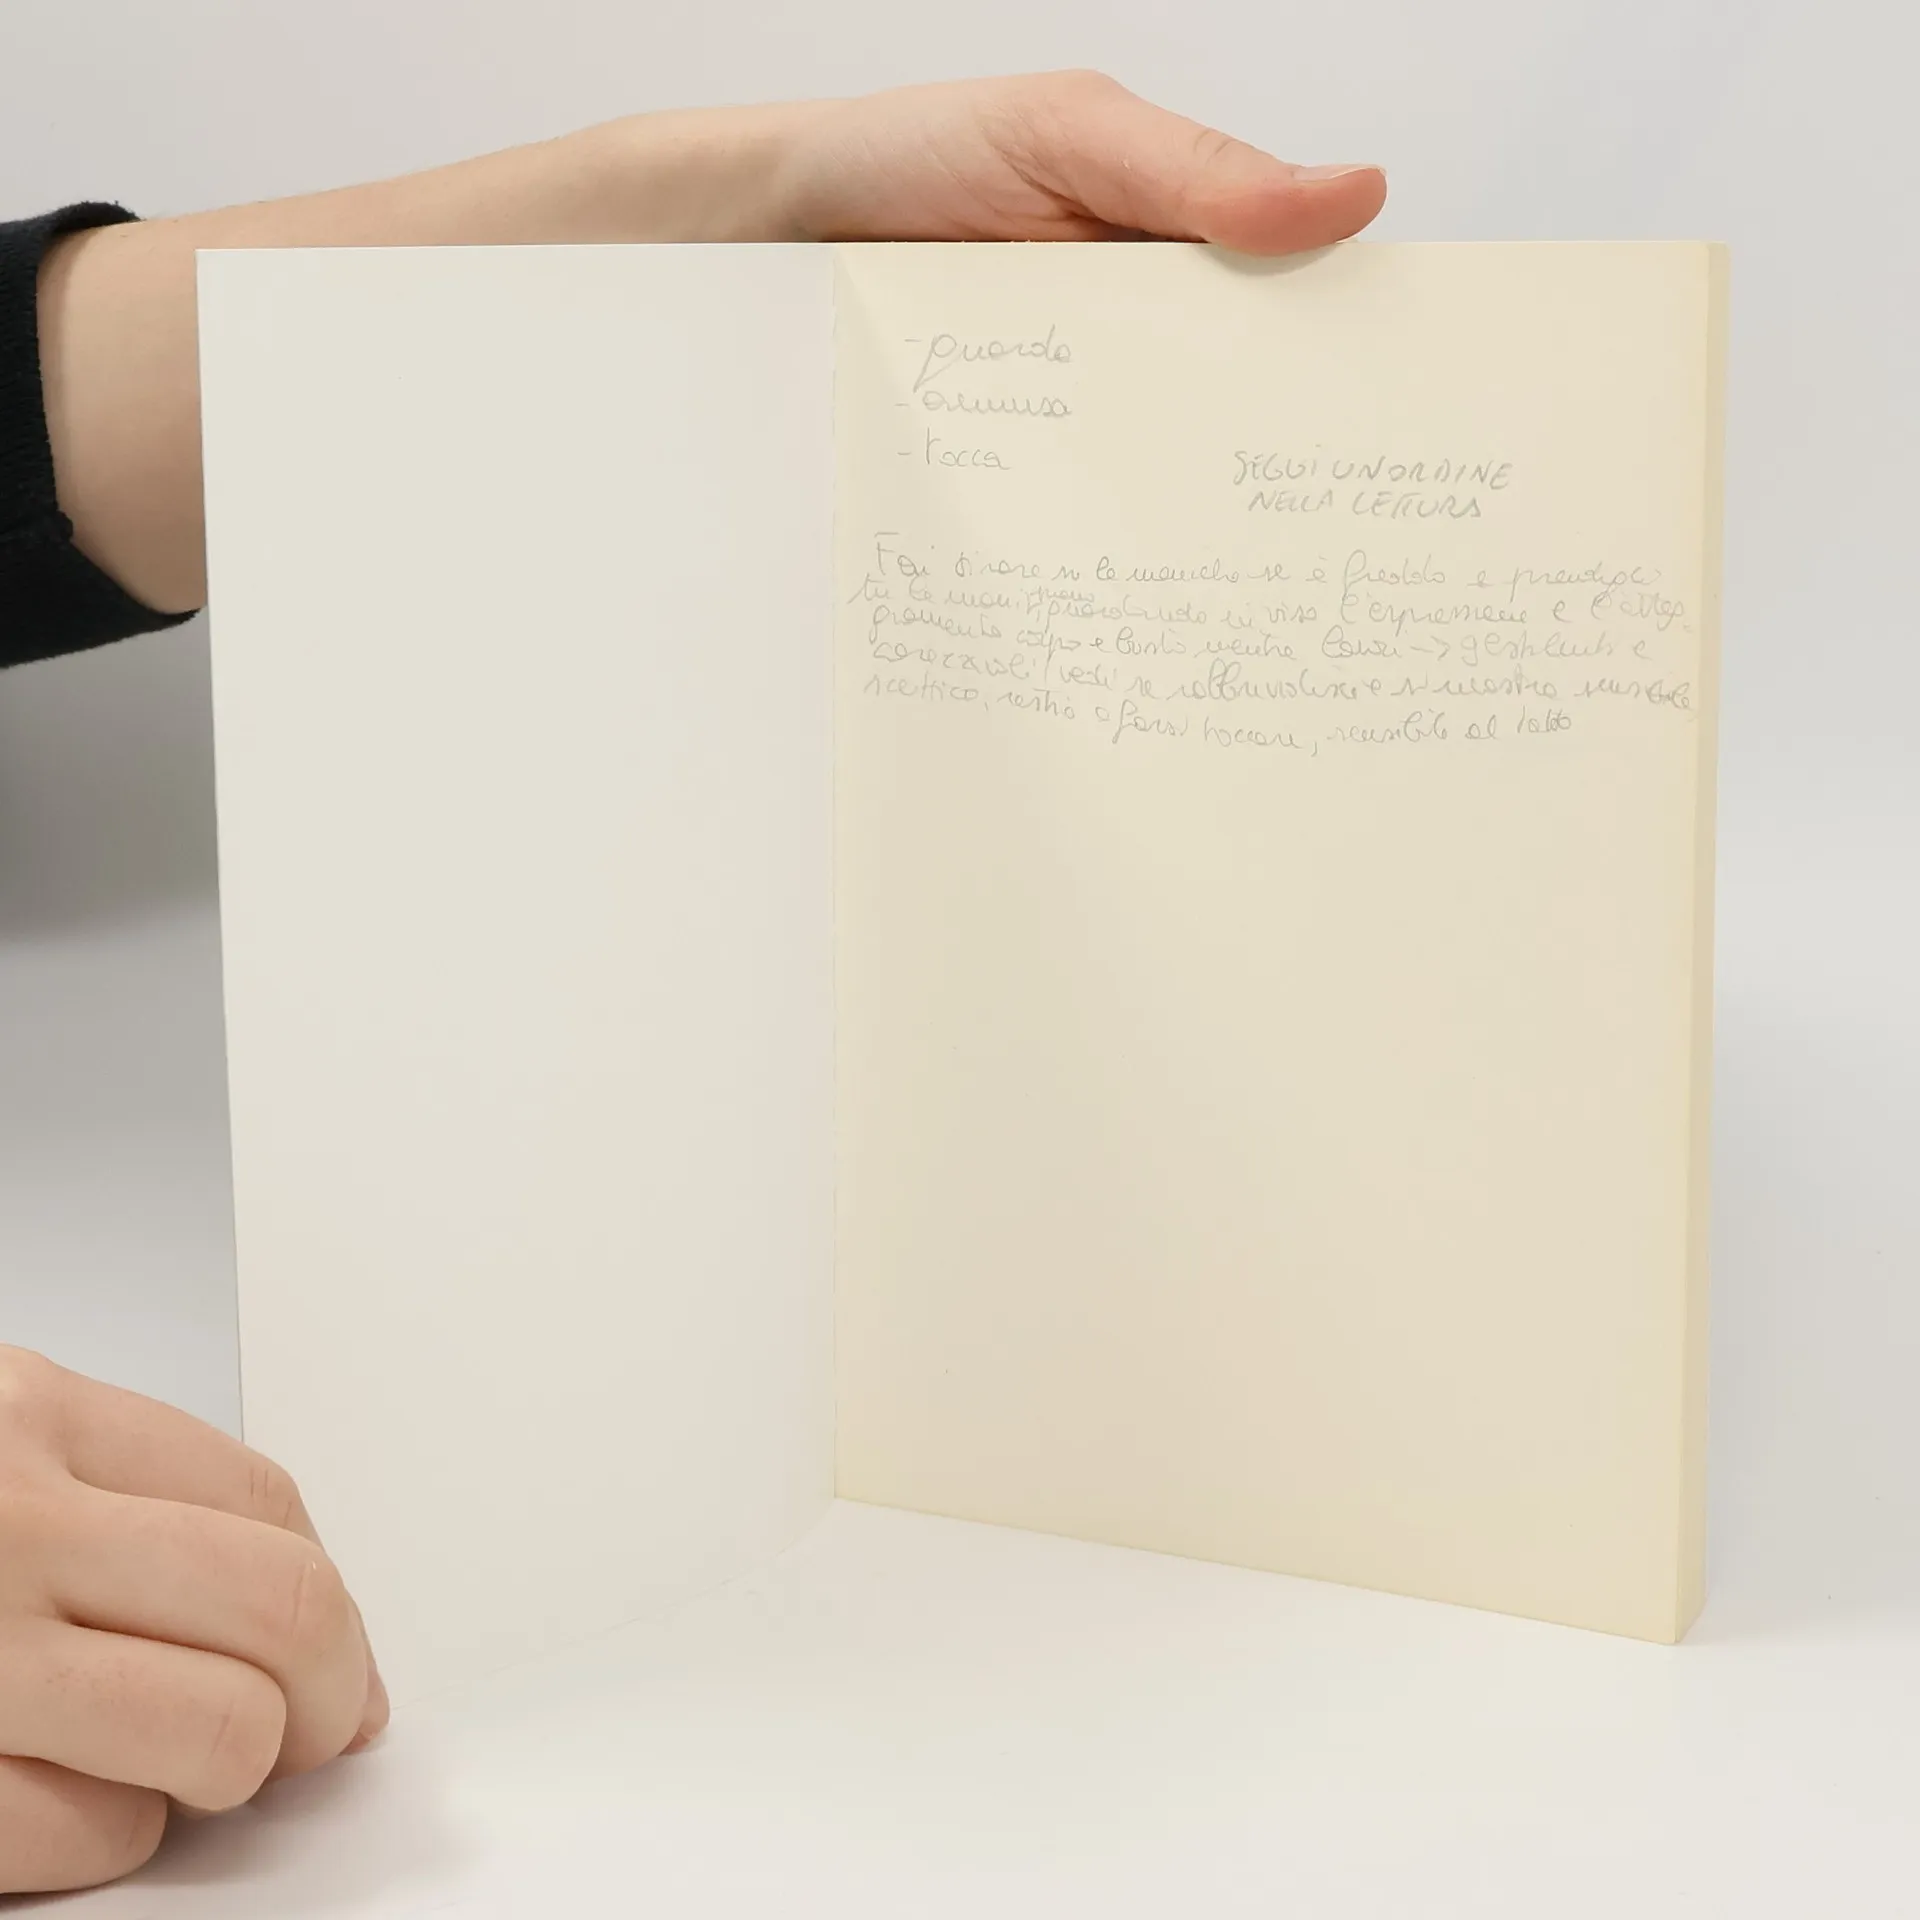 - guarda
- annusa
- tocca
SEGUI UN ORDINE
NELLA LETTURA
Fai tirare su le maniche se è freddo e prendigli
tu le mani, piano guardando in viso l'espressione e l'atteg-
giamento corpo e busto mentre lavori -> gesti lenti e
carezzevoli vedi se rabbrividisce e si mostra sensibile
scettico, restio a farsi toccare, sensibile al tatto